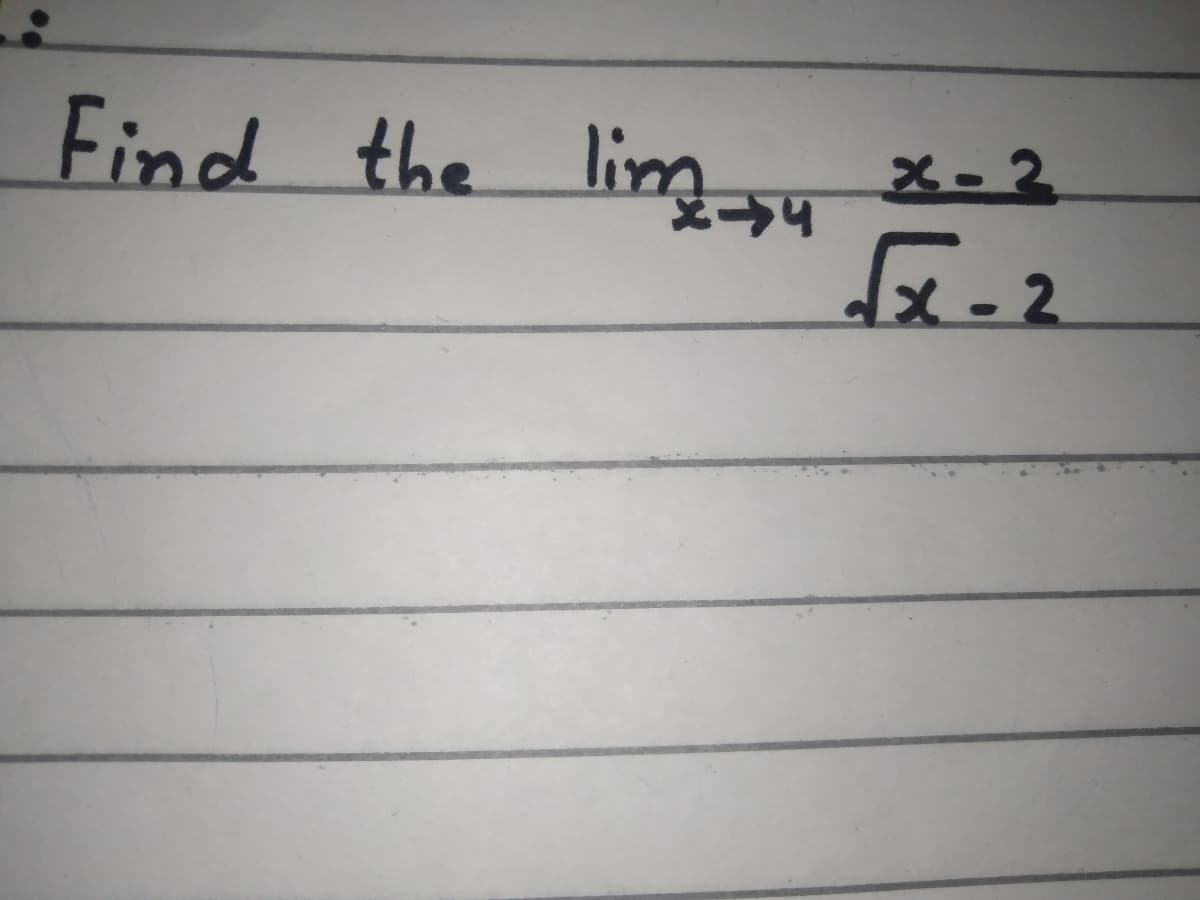 Find the lim x→4 x-2
√x - 2